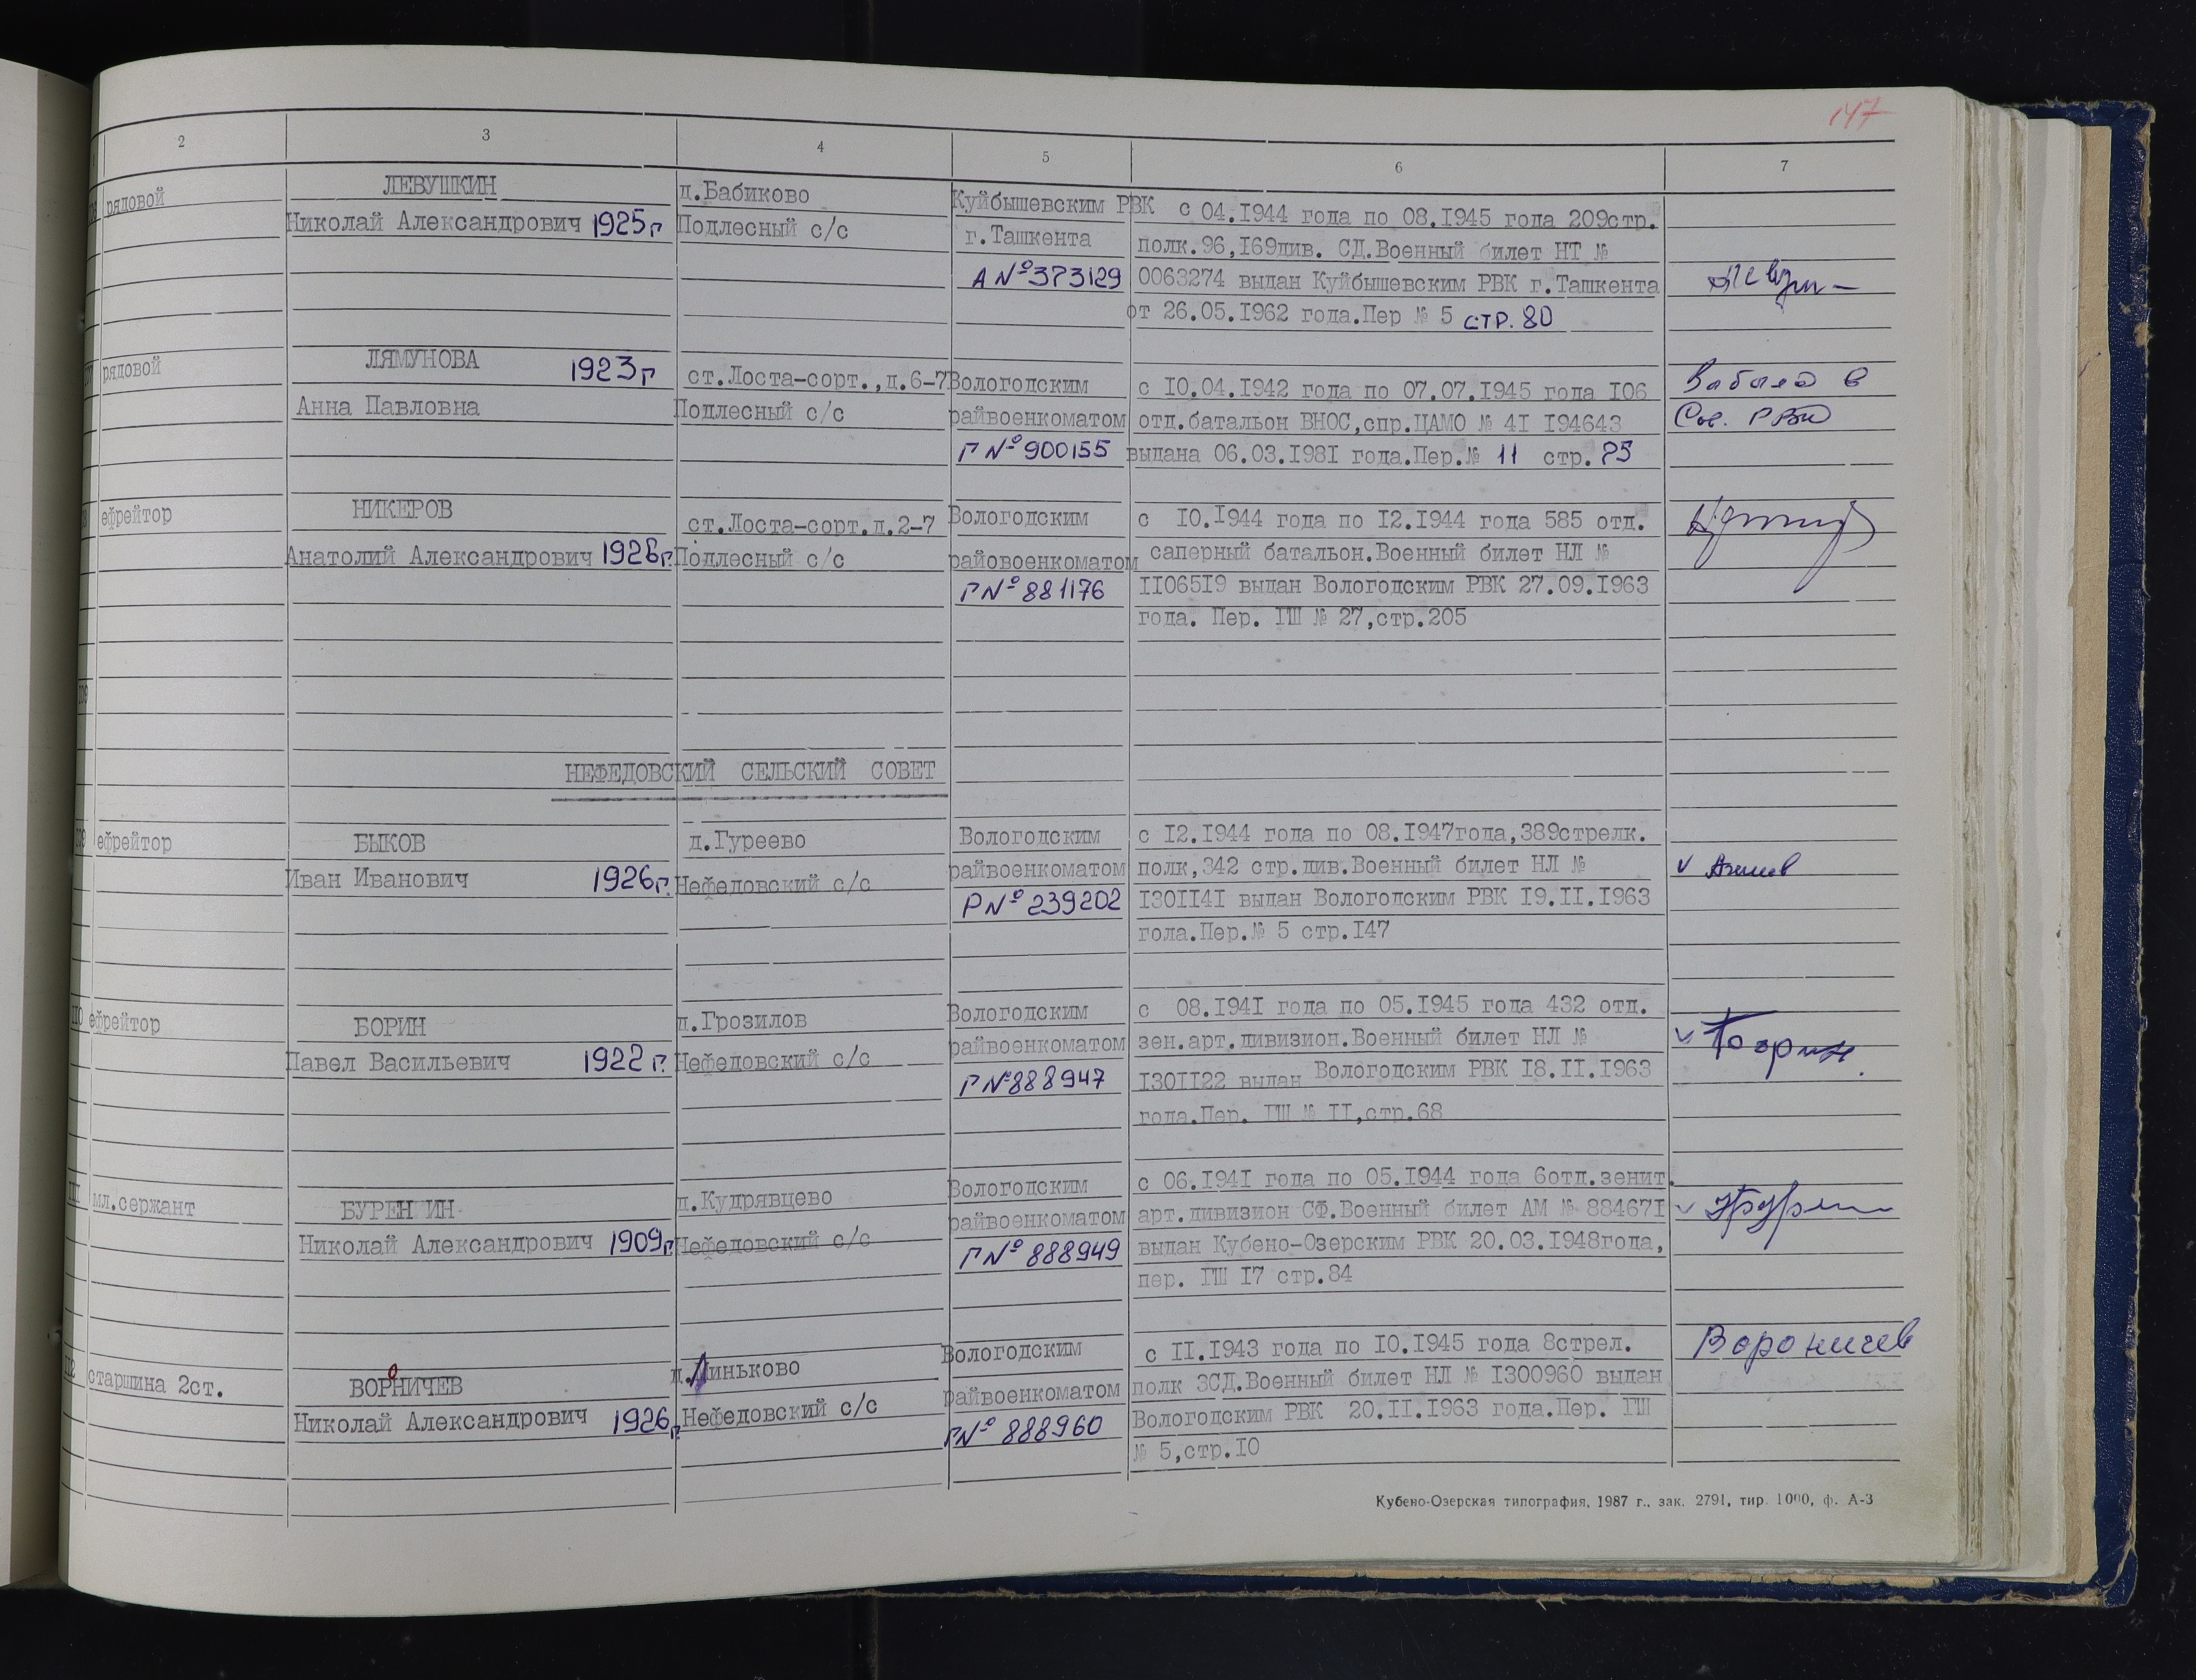 147
2 3 4 5 6 7
рядовой
ЛЕВУШКИН
Николай Александрович 1925г
д.Бабиково
Подлесный с/с
Куйбышевским РВК
г.Ташкента
А №373129
с 04.1944 года по 08.1945 года 209стр.
полк.96,169див. СД.Военный билет НТ №
0063274 выдан Куйбышевским РВК г.Ташкента
от 26.05.1962 года.Пер № 5 стр. 80
рядовой
ЛЯМУНОВА 1923г
Анна Павловна
ст.Лоста-сорт.,д.6-7
Подлесный с/с
Вологодским
райвоенкоматом
Г №900155
с 10.04.1942 года по 07.07.1945 года 106
отд.батальон ВНОС,спр.ЦАМО № 41 194643
выдана 06.03.1981 года.Пер.№ 11 стр.
в
РВК
ефрейтор
НИКЕРОВ
Анатолий Александрович 1926г.
ст.Лоста-сорт.д.2-7
Подлесный с/с
Вологодским
райовоенкоматом
Г№ 881176
с 10.1944 года по 12.1944 года 585 отд.
саперный батальон.Военный билет НЛ №
1106519 выдан Вологодским РВК 27.09.1963
года. Пер. ГШ № 27,стр.205
НЕФЕДОВСКИЙ СЕЛЬСКИЙ СОВЕТ
ефрейтор
БЫКОВ
Иван Иванович 1926г.
д.Гуреево
Нефедовский с/с
Вологодским
райвоенкоматом
Р№ 239202
с 12.1944 года по 08.1947года,389стрелк.
полк,342 стр.див.Военный билет НЛ №
1301141 выдан Вологодским РВК 19.11.1963
года.Пер.№ 5 стр.147
110 ефрейтор
БОРИН
Павел Васильевич 1922 г.
д.Грозилов
Нефедовский с/с
Вологодским
райвоенкоматом
Г№888947
с 08.1941 года по 05.1945 года 432 отд.
зен.арт.дивизион.Военный билет НЛ №
1301122 выдан Вологодским РВК 18.11.1963
года.Пер. ГШ № 11,стр.68
111 мл.сержант
БУРЕНИН
Николай Александрович 1909г.
д.Кудрявцево
Нефедовский с/с
Вологодским
райвоенкоматом
Г№ 888949
с 06.1941 года по 05.1944 года 6отд.зенит.
арт.дивизион СФ.Военный билет АМ № 884671
выдан Кубено-Озерским РВК 20.03.1948года,
пер. ГШ 17 стр.84
112 старшина 2ст.
ВОРОНИЧЕВ
Николай Александрович 1926г.
д.Линьково
Нефедовский с/с
Вологодским
райвоенкоматом
Г№ 888960
с 11.1943 года по 10.1945 года 8стрел.
полк ЗСД.Военный билет НЛ № 1300960 выдан
Вологодским РВК 20.11.1963 года.Пер. ГШ
№ 5,стр.10
Вороничев
Кубено-Озерская типография, 1987 г., зак. 2791, тир. 1000, ф. А-3